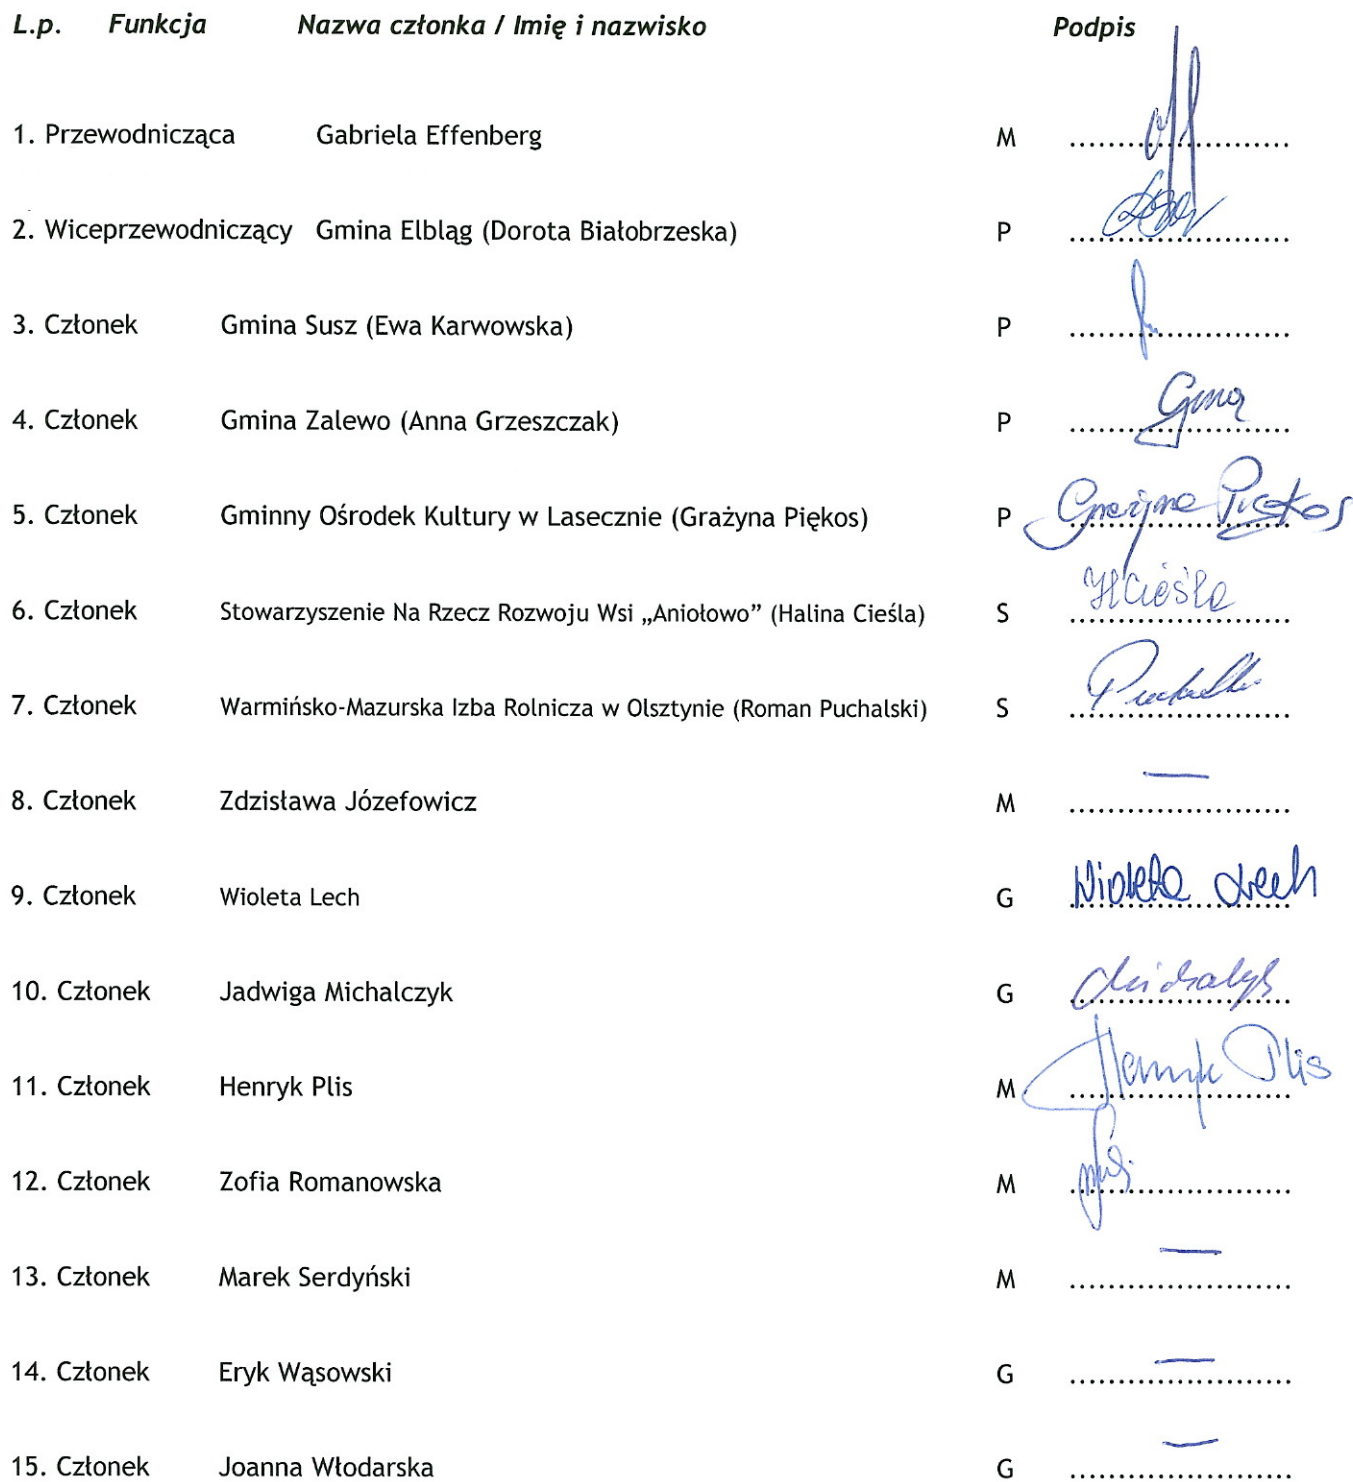 L.p. Funkcja Nazwa członka / Imię i nazwisko Podpis
1. Przewodnicząca Gabriela Effenberg M ........................
2. Wiceprzewodniczący Gmina Elbląg (Dorota Białobrzeska) P ........................
3. Członek Gmina Susz (Ewa Karwowska) P ........................
4. Członek Gmina Zalewo (Anna Grzeszczak) P ........................
5. Członek Gminny Ośrodek Kultury w Lasecznie (Grażyna Piękos) P Grażyna Piękos
6. Członek Stowarzyszenie Na Rzecz Rozwoju Wsi „Aniołowo” (Halina Cieśla) S HCieśla
7. Członek Warmińsko-Mazurska Izba Rolnicza w Olsztynie (Roman Puchalski) S ........................
8. Członek Zdzisława Józefowicz M — ........................
9. Członek Wioleta Lech G Wioleta Lech
10. Członek Jadwiga Michalczyk G ........................
11. Członek Henryk Plis M Henryk Plis
12. Członek Zofia Romanowska M ........................
13. Członek Marek Serdyński M — ........................
14. Członek Eryk Wąsowski G — ........................
15. Członek Joanna Włodarska G — ........................